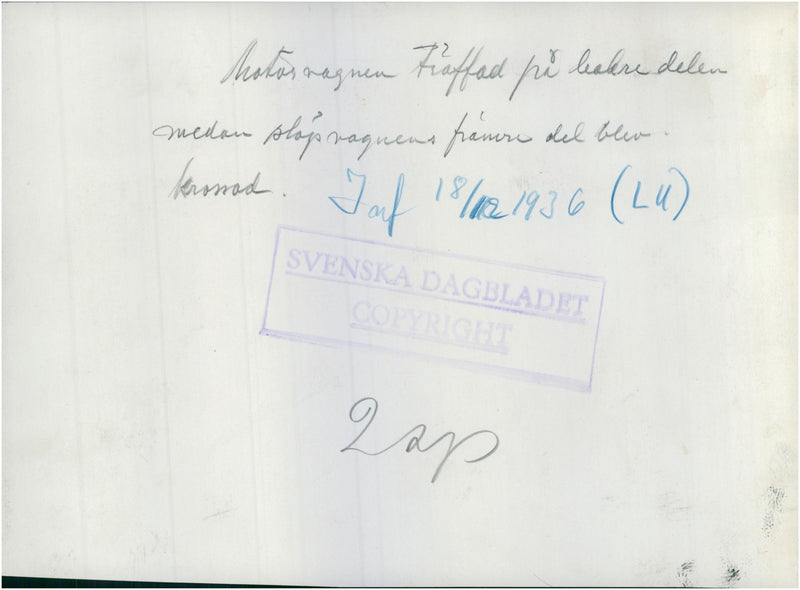 Motorvagnen träffad på bakre delen
medan släpvagnens främre del blev
krossad.
Inf 18/12 1936 (LU)
SVENSKA DAGBLADET
COPYRIGHT
2 sp